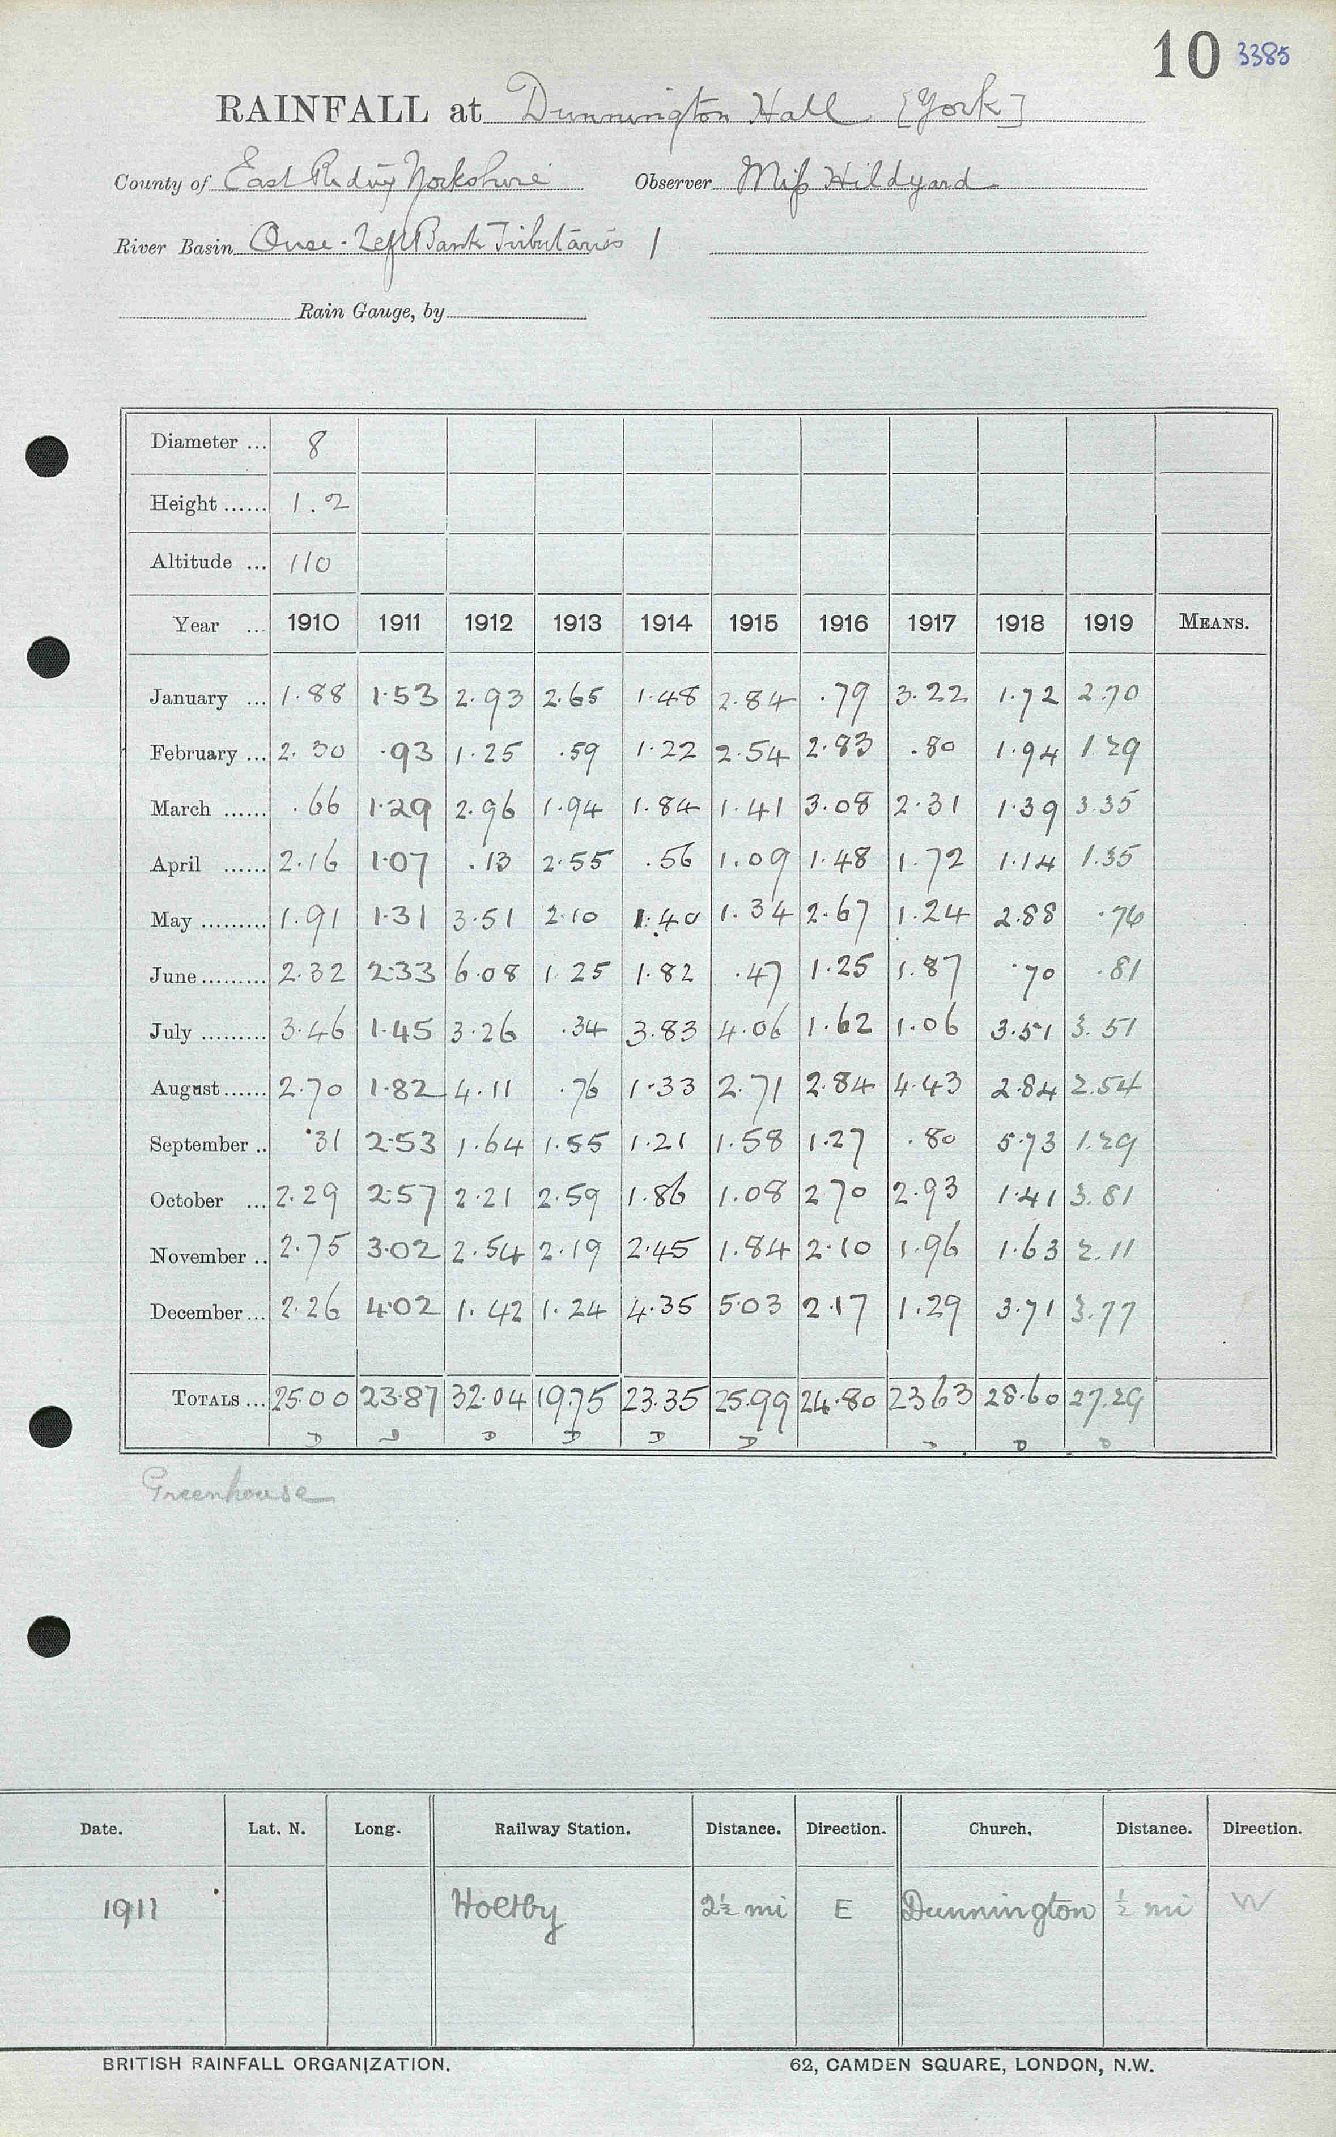 10 3385
RAINFALL at Dunnington Hall [York]
County of East Riding Yorkshire Observer Miss Hildyard
River Basin Ouse - Left Bank Tributaries 1
Rain Gauge, by
Diameter ... 8
Height ...... 1.2
Altitude ... 110
Year ... 1910 1911 1912 1913 1914 1915 1916 1917 1918 1919 MEANS.
January ... 1.88 1.53 2.93 2.65 1.48 2.84 .79 3.22 1.72 2.70
February ... 2.30 .93 1.25 .59 1.22 2.54 2.83 .80 1.94 1.29
March ...... .66 1.29 2.96 1.94 1.84 1.41 3.08 2.31 1.39 3.35
April ...... 2.16 1.07 .13 2.55 .56 1.09 1.48 1.72 1.14 1.35
May ......... 1.91 1.31 3.51 2.10 1.40 1.34 2.67 1.24 2.88 .76
June ......... 2.32 2.33 6.08 1.25 1.82 .47 1.25 1.87 .70 .81
July ......... 3.46 1.45 3.26 .34 3.83 4.06 1.62 1.06 3.51 3.51
August ...... 2.70 1.82 4.11 .76 1.33 2.71 2.84 4.43 2.84 2.54
September .. .31 2.53 1.64 1.55 1.21 1.58 1.27 .80 5.73 1.29
October ... 2.29 2.57 2.21 2.59 1.86 1.08 2.70 2.93 1.41 3.81
November .. 2.75 3.02 2.54 2.19 2.45 1.84 2.10 1.96 1.63 2.11
December ... 2.26 4.02 1.42 1.24 4.35 5.03 2.17 1.29 3.71 3.77
TOTALS ... 25.00 23.87 32.04 19.75 23.35 25.99 24.80 23.63 28.60 27.29
D D D D D D D D
Greenhouse
Date. Lat. N. Long. Railway Station. Distance. Direction. Church. Distance. Direction.
1911 Holtby 2½ mi E Dunnington ½ mi W
BRITISH RAINFALL ORGANIZATION. 62, CAMDEN SQUARE, LONDON, N.W.